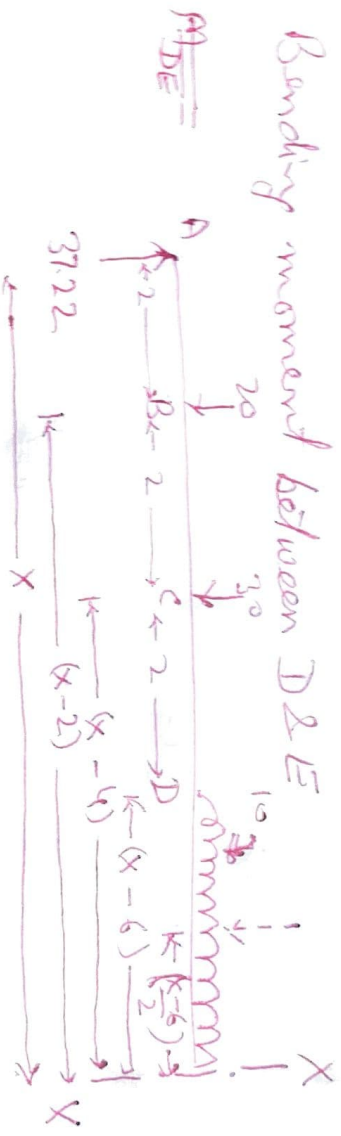 Bending moment between D & E
M DE
20 30 10 X
A
2 B 2 C 2 D (x-6)/2
37.22
(x-6)
(x-4)
(x-2)
x
X